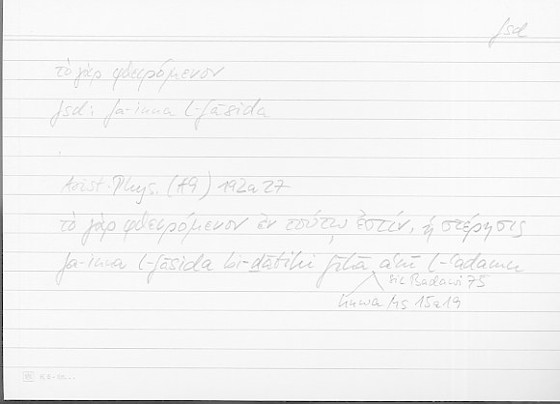 fsd
τὸ γὰρ φθειρόμενον
fsd: fa-inna l-fāsida
Arist. Phys. (A9) 192a27
τὸ γὰρ φθειρόμενον ἐν τούτῳ ἐστίν, ἡ στέρησις
fa-inna l-fāsida bi-ḏātihi fīhā aʿnī l-ʿadamu
sic Badawi 75
huwa Ms 15a19